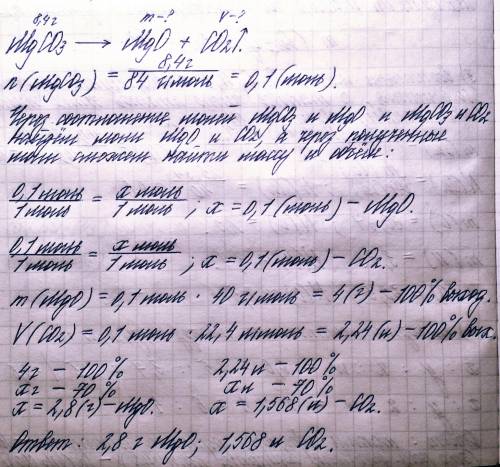 8,4г m-? V-?
MgCO₃ ⟶ MgO + CO₂↑.
n(MgCO₃) = 8,4г / 84 г/моль = 0,1 (моль).
Через соотношение молей MgCO₃ и MgO и MgCO₃ и CO₂
найдём моли MgO и CO₂, а через полученные
моли сможем найти массу и объём:
0,1 моль / 1 моль = x моль / 1 моль ; x = 0,1 (моль) – MgO.
0,1 моль / 1 моль = x моль / 1 моль ; x = 0,1 (моль) – CO₂.
m(MgO) = 0,1 моль · 40 г/моль = 4(г) – 100% выход.
V(CO₂) = 0,1 моль · 22,4 л/моль = 2,24(л) – 100% вых.
4г – 100% 2,24л – 100%
xг – 70% xл – 70%
x = 2,8(г) – MgO. x = 1,568(л) – CO₂.
Ответ: 2,8 г MgO; 1,568 л CO₂.